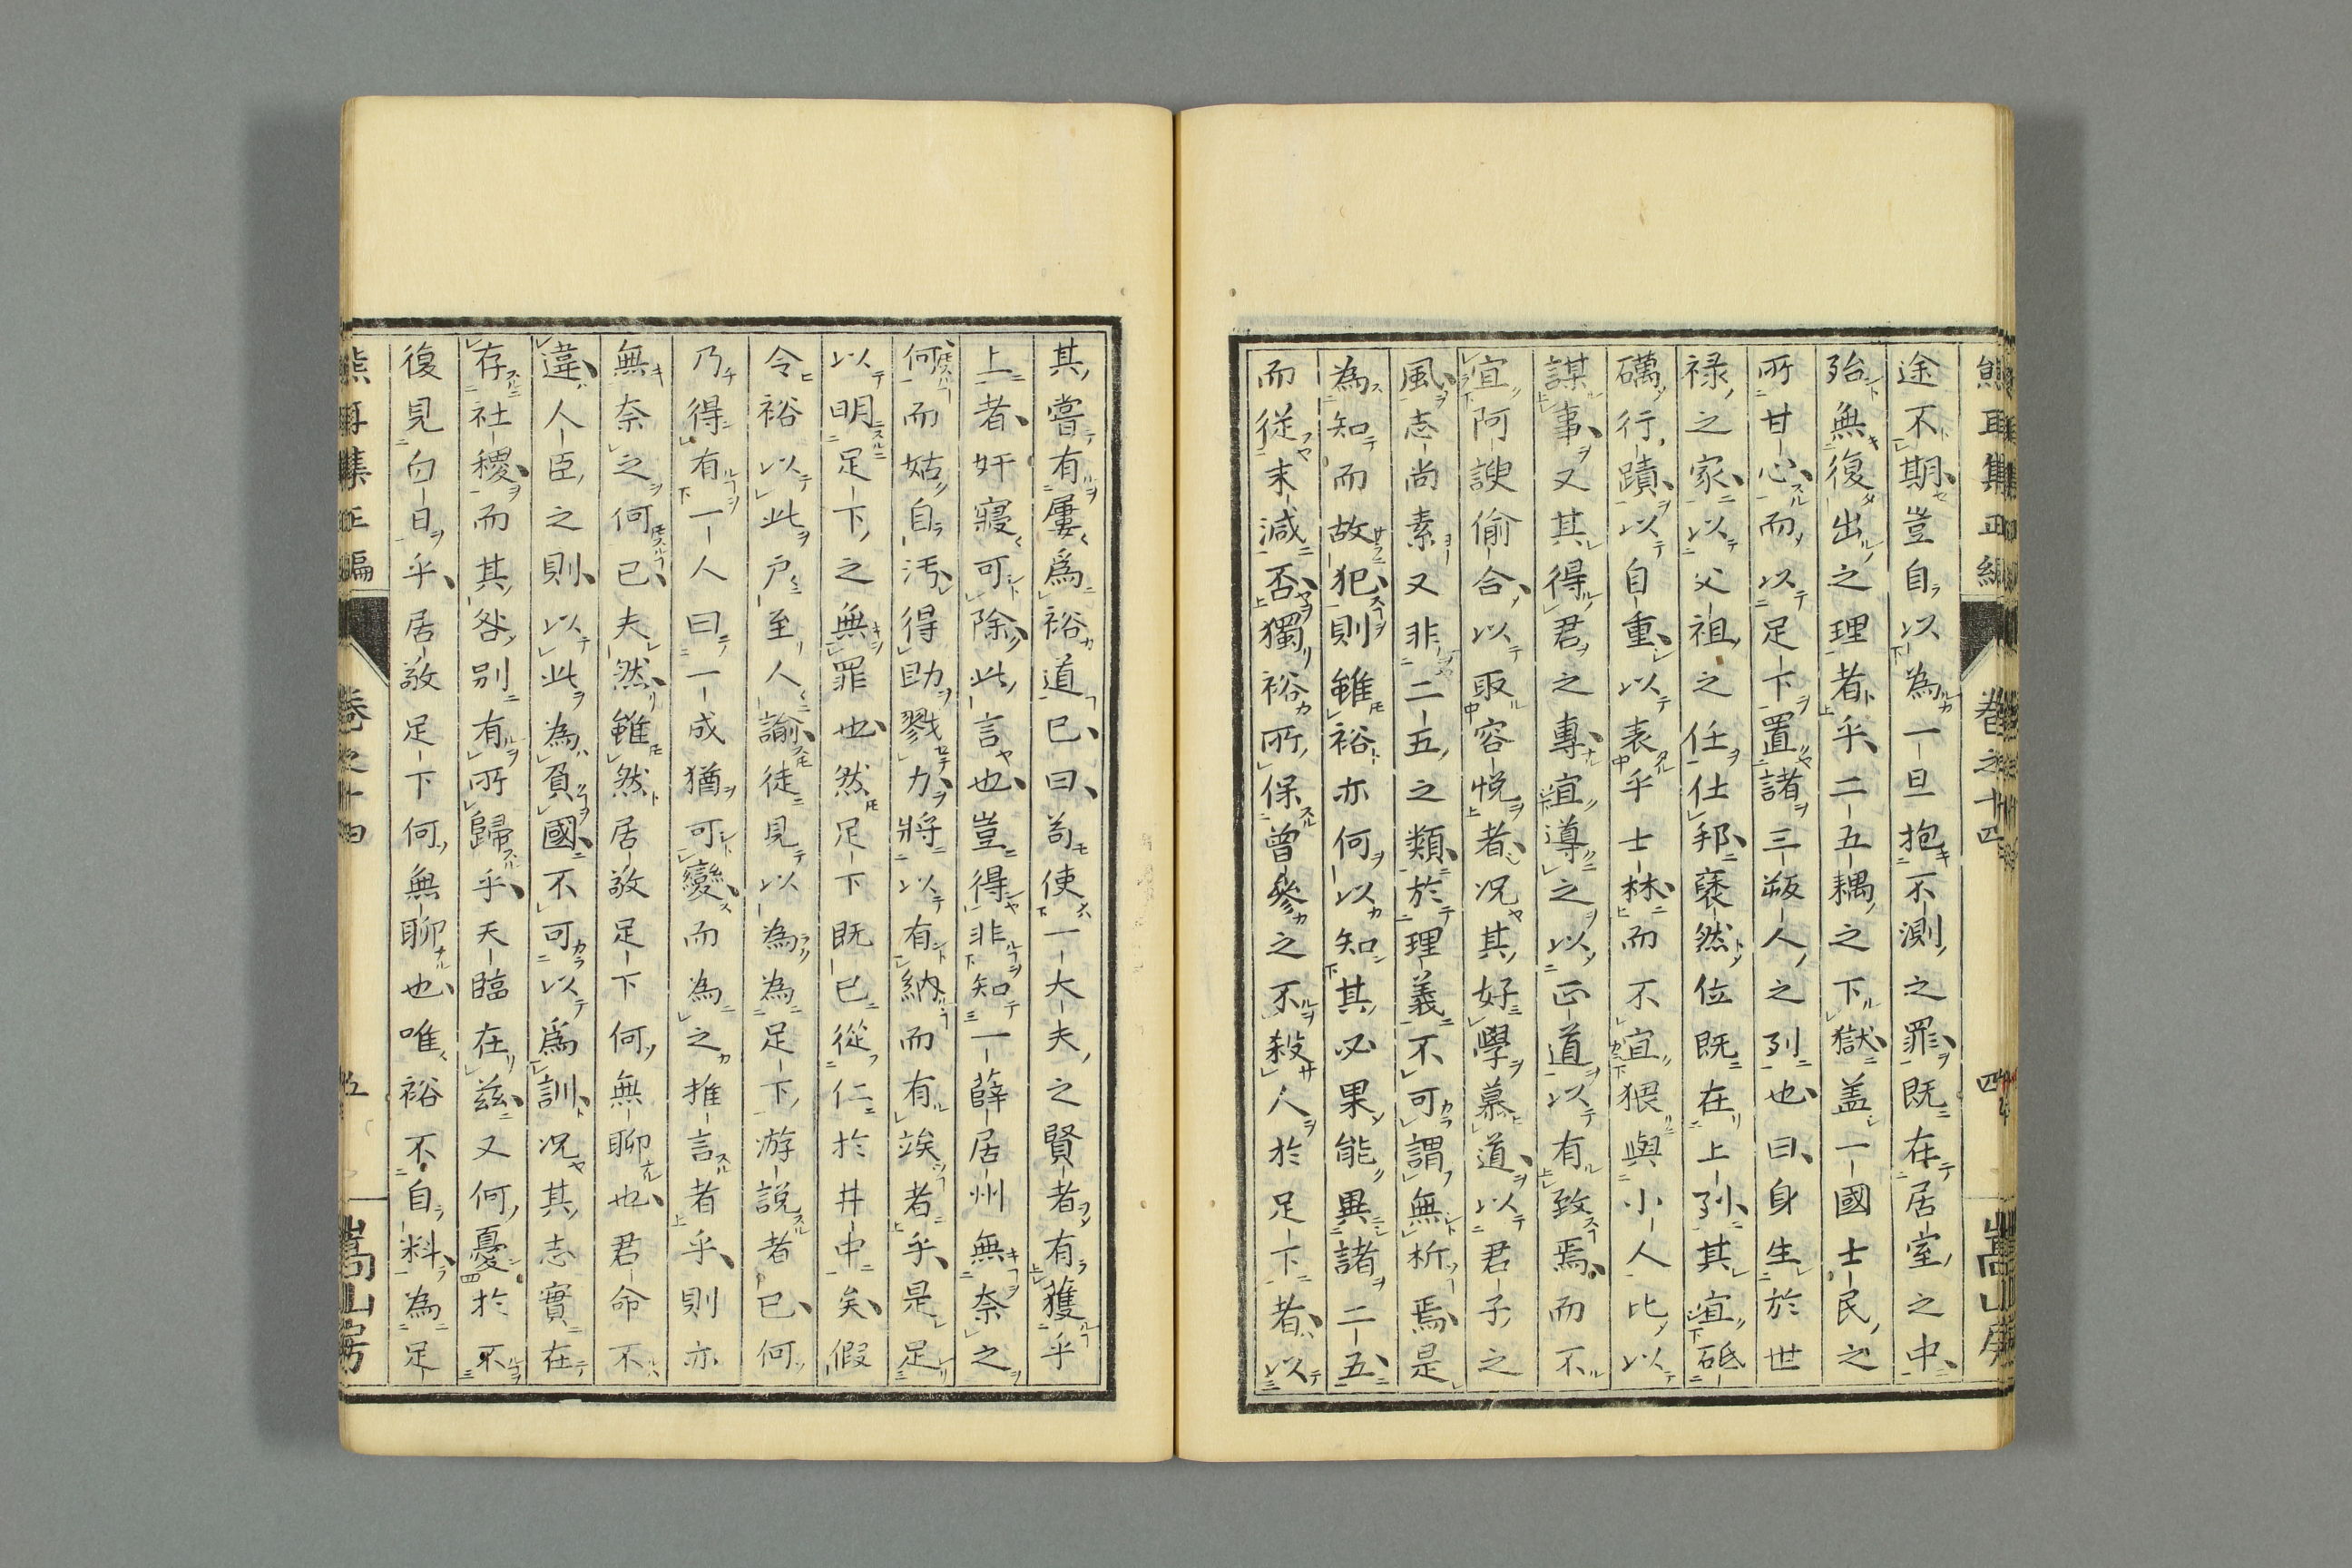 熊耳集正編 卷之十四 四 嵩山房
途不期豈自以為一旦抱不測之罪既在居室之中
殆無復出之理者乎二五耦之下獄盖一國士民之
所甘心而以足下置諸三叛人之列也曰身生於世
禄之家以父祖之任仕邦褎然位既在上列其宜砥
礪行蹟以自重以表乎士林而不宜猥與小人比以
謀事又其得君之專宜導之以正道以有致焉而不
宜阿諛偷合以取容悦者况其好學慕道以君子之
風志尚素又非二五之類於理義不可謂無析焉是
為知而故犯則雖裕亦何以知其必果能異諸二五
而従末減否獨裕所保曾參之不殺人於足下者以
其嘗有屢爲裕道已曰苟使一大夫之賢者有獲乎
上者奸寢可除此言也豈得非知一薛居州無奈之
何而姑自汚得助戮力將以有納而有竢者乎是足
以明足下之無罪也然足下既已從仁於井中矣假
令裕以此户至人諭徒見以為為足下游説者已何
乃得有一人曰一成猶可變而為之推言者乎則亦
無奈之何已夫然雖然居敬足下何無聊也君命不
違人臣之則以此為負國不可以爲訓况其志實在
存社稷而其咎别有所歸乎天臨在茲又何憂於不
復見白日乎居敬足下何無聊也唯裕不自料為足
熊耳集正編 卷之十四 五 嵩山房